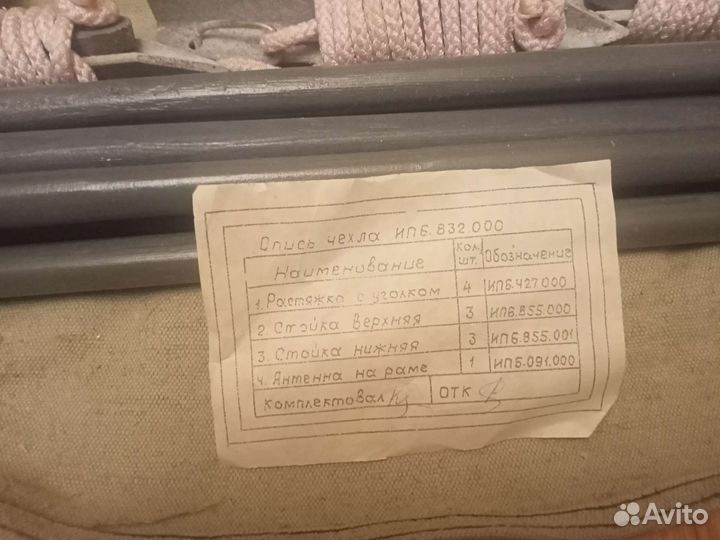 Опись чехла ИПБ.832.000
Наименование Кол. шт. Обозначение
1. Растяжка с уголком 4 ИПБ.427.000
2. Стойка верхняя 3 ИПБ.855.000
3. Стойка нижняя 3 ИПБ.855.001
4. Антенна на раме 1 ИПБ.091.000
Комплектовал ОТК
Avito